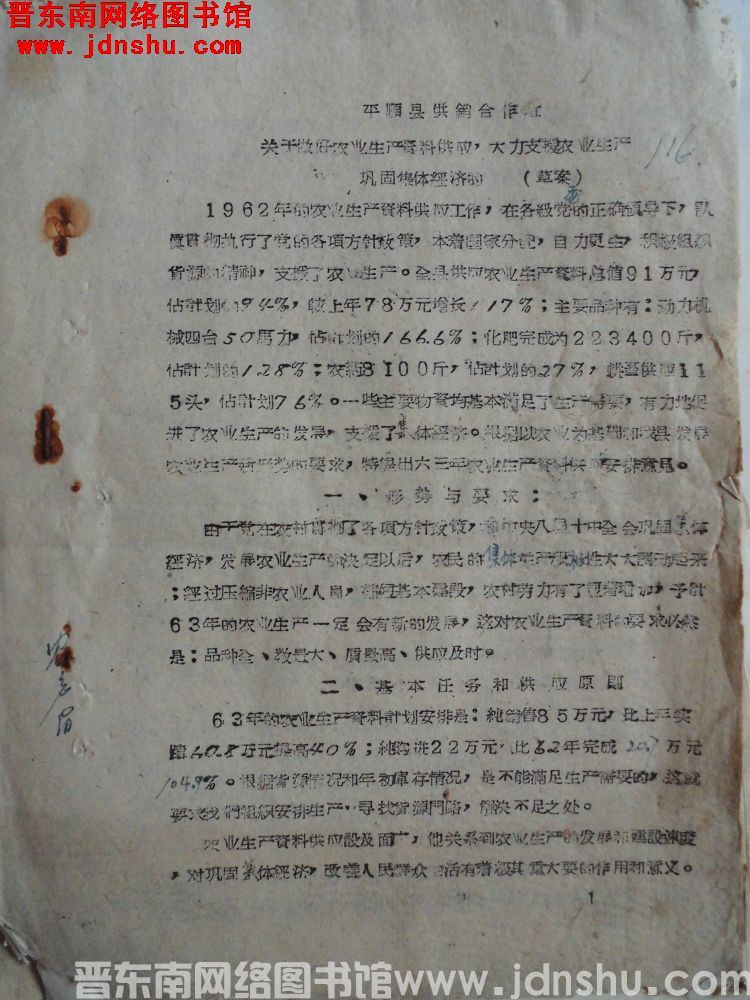 晋东南网络图书馆
www.jdnshu.com
平順县供銷合作社
关于做好农业生产資料供应，大力支援农业生产
116.
巩固集体經济的 （草案）
1962年的农业生产資料供应工作，在各級党的正确領导下，認
眞貫彻执行了党的各項方針政策，本着国家分配，自力更生，积极組織
货源的精神，支援了农业生产。全县供应农业生产資料总值91万元，
佔計划的94%，較上年78万元增长117%；主要品种有：动力机
械四台50馬力，佔計划的166.6%；化肥完成为223400斤，
佔計划的128%；农藥8100斤，佔計划的27%，耕畜供应11
5头，佔計划76%。一些主要物資均基本滿足了生产需要，有力地促
进了农业生产的发展，支援了集体經济。根据以农业为基础和我县发展
农业生产新形势的要求，特提出六三年农业生产資料供应安排意見。
一、形势与要求：
由于党在农村貫彻了各項方針政策，和中央八届十中全会巩固集体
經济，发展农业生产的决定以后，农民的集体生产积极性大大調动起来
；經过压縮非农业人口，縮短基本建設，农村劳力有了显著增加，予計
63年的农业生产一定会有新的发展，这对农业生产資料的要求必然
是：品种全、数量大、质量高、供应及时。
二、基本任务和供应原則
63年的农业生产資料計划安排是：純銷售85万元，比上年实
際60.8万元提高40%；純购进22万元，比62年完成20.7万元
104.9%。根据货源情况和年初庫存情况，是不能滿足生产需要的，这就
要求我們組織安排生产，寻找货源門路，解决不足之处。
农业生产資料供应設及面广，他关系到农业生产的发展和建設速度
，对巩固集体經济，改善人民群众生活有着极其重大要的作用和意义。
1
晋东南网络图书馆www.jdnshu.com